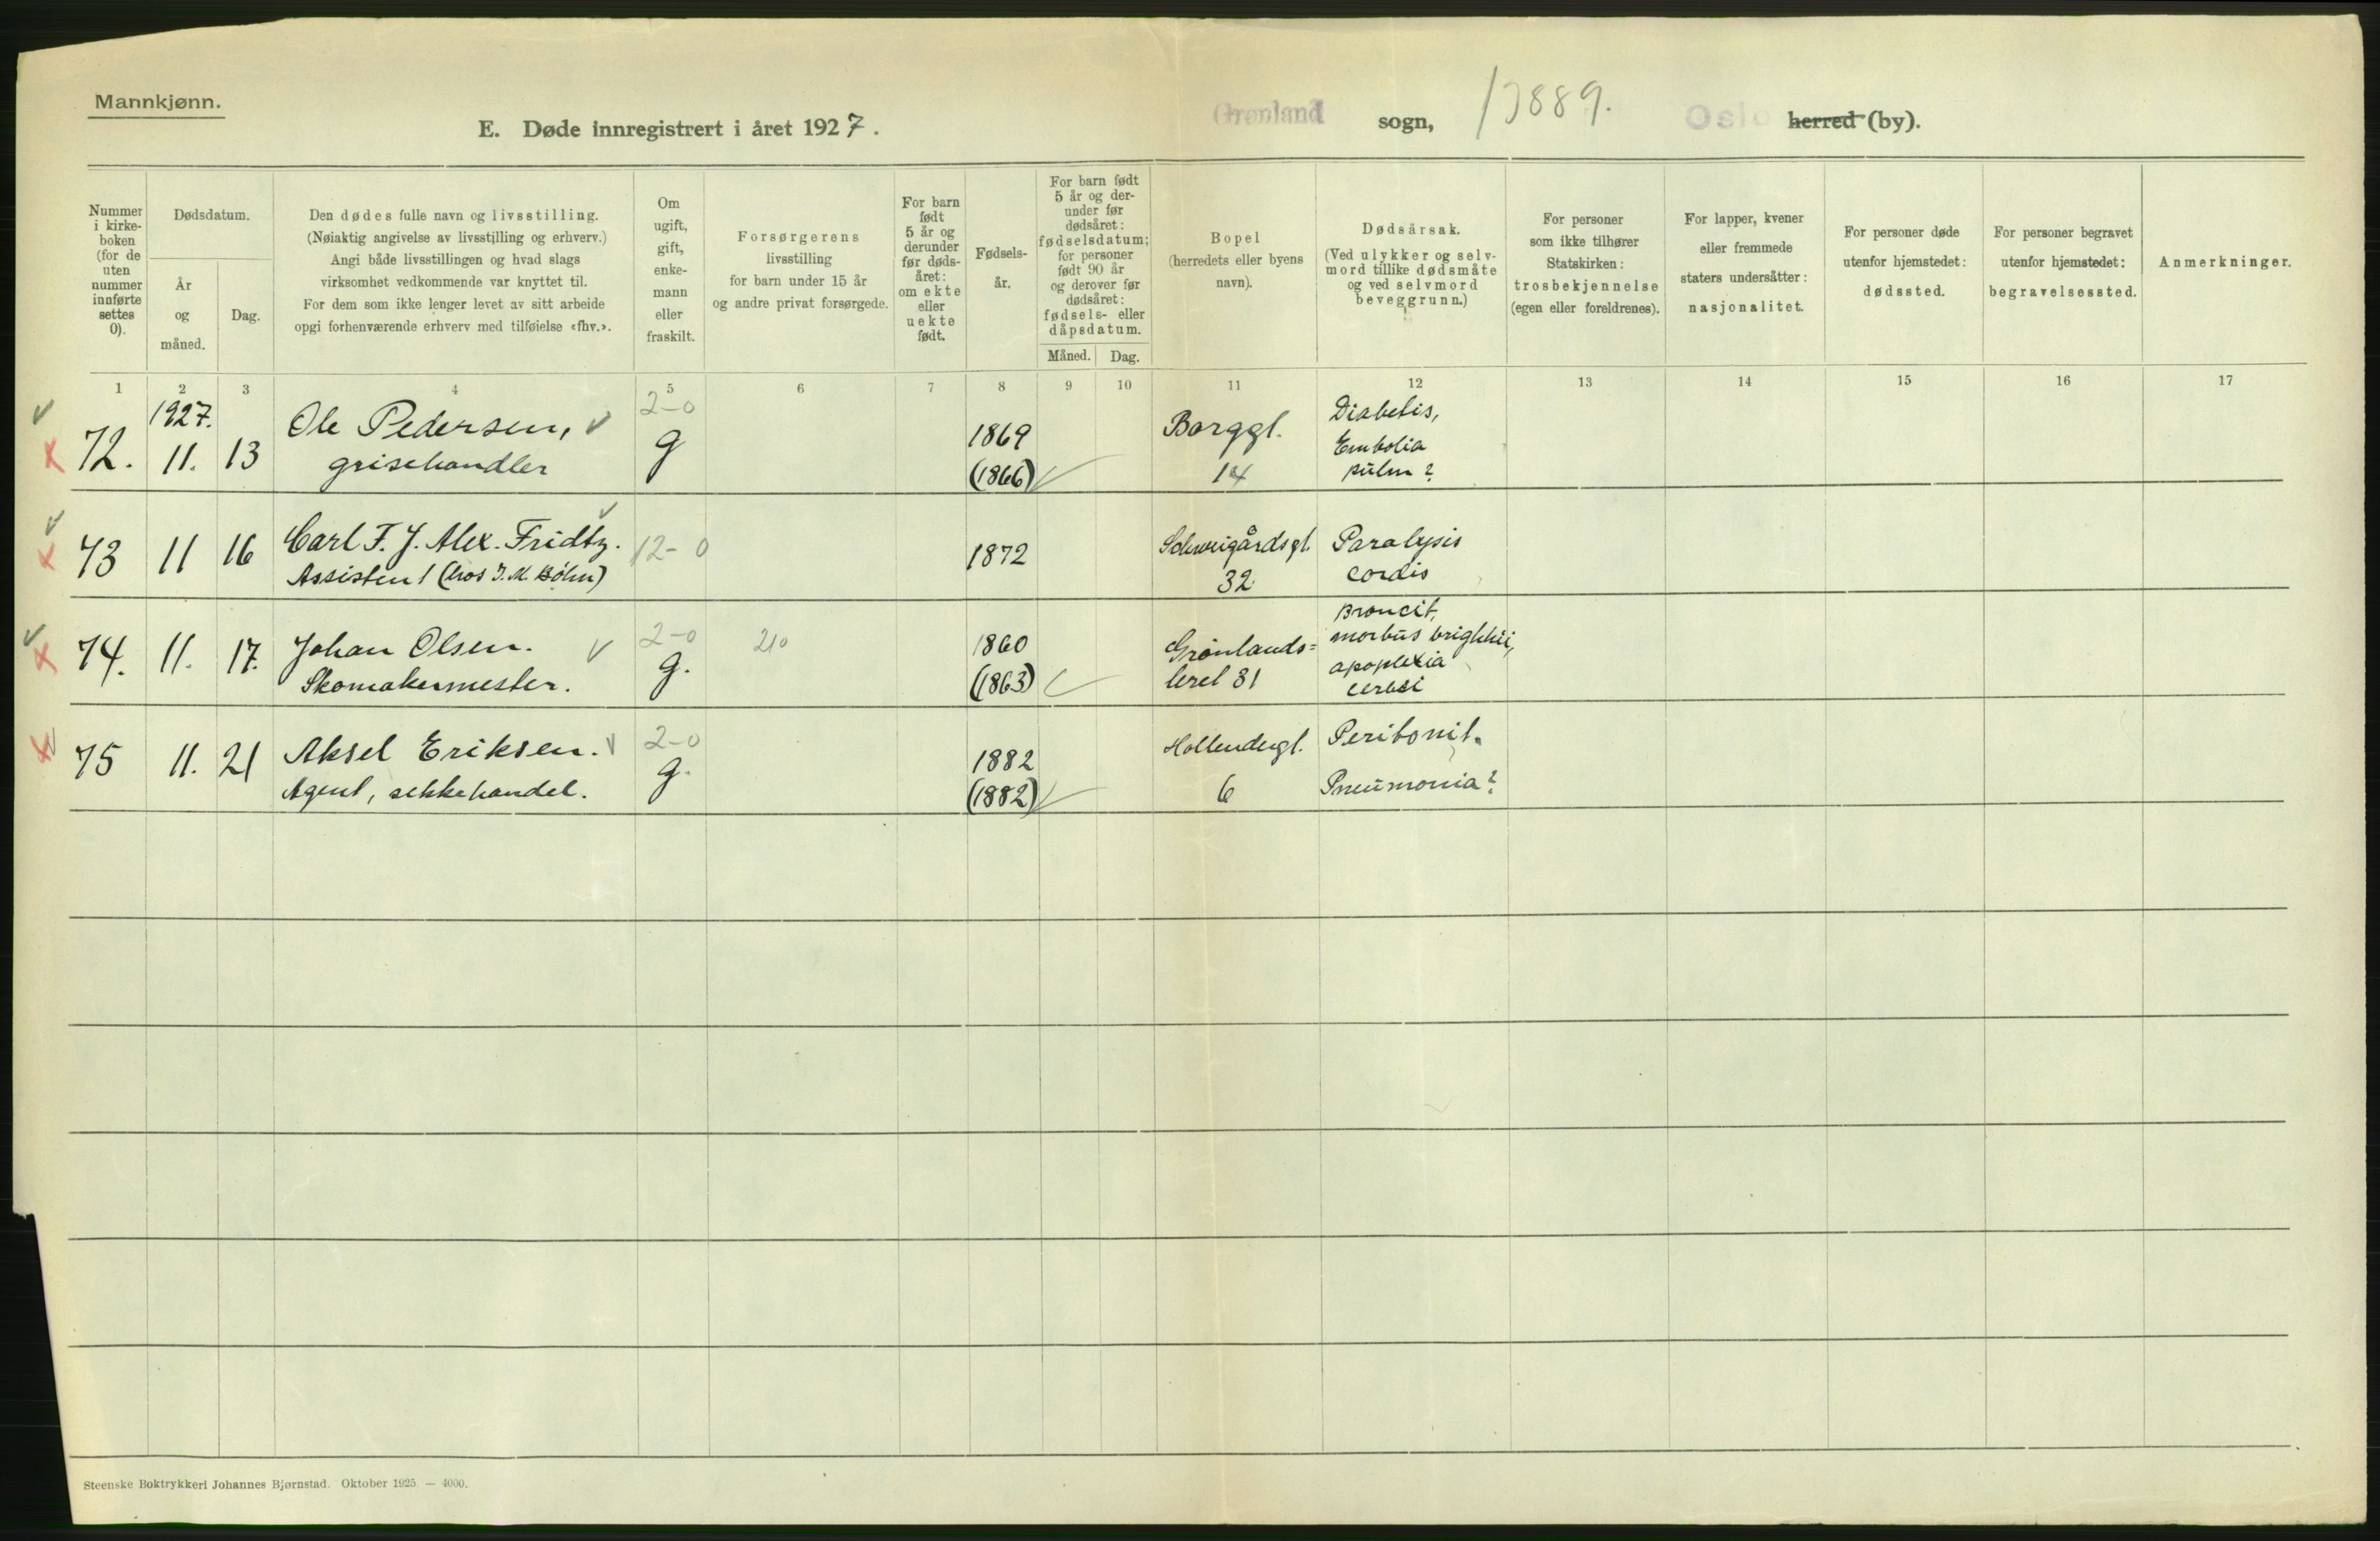 Mannkjønn.
E. Døde innregistrert i året 1927.
Grønland sogn,
Oslo herred (by).
Nummer i kirke-boken (for de uten nummer innførte settes 0).
Dødsdatum.
År og måned.
Dag.
Den dødes fulle navn og livsstilling.
(Nøiaktig angivelse av livsstilling og erhverv.)
Angi både livsstillingen og hvad slags
virksomhet vedkommende var knyttet til.
For dem som ikke lenger levet av sitt arbeide
opgi forhenværende erhverv med tilføielse «fhv.».
Om ugift, gift, enke-mann eller fraskilt.
Forsørgerens
livsstilling
for barn under 15 år
og andre privat forsørgede.
For barn født 5 år og derunder før døds-året: om ekte eller uekte født.
Fødsels-
år.
For barn født 5 år og der-under før dødsåret: fødselsdatum; for personer født 90 år og derover før dødsåret: fødsels- eller dåpsdatum.
Måned. Dag.
Bopel
(herredets eller byens
navn).
Dødsårsak.
(Ved ulykker og selv-
mord tillike dødsmåte
og ved selvmord
beveggrunn.)
For personer
som ikke tilhører
Statskirken:
trosbekjennelse
(egen eller foreldrenes).
For lapper, kvener
eller fremmede
staters undersåtter:
nasjonalitet.
For personer døde
utenfor hjemstedet:
dødssted.
For personer begravet
utenfor hjemstedet:
begravelsessted.
Anmerkninger.
1 2 3 4 5 6 7 8 9 10 11 12 13 14 15 16 17
1927.
72. 11. 13
Ole Pedersen,
grisehandler
2-0
g
1869
(1866)
Borggt.
14
Diabetis,
Embolia
pulm?
73 11 16
Carl F. J. Alex. Fridtz.
Assistent (hos J. M. Bøhn)
12-0
1872
Schweigårdsgt.
32
Paralysis
cordis
74. 11. 17.
Johan Olsen.
Skomakermester.
2-0
g.
210
1860
(1863)
Grønlands=
leret 31
Broncit,
morbus brightii,
apoplexia
cerebri
75 11. 21
Aksel Eriksen.
Agent, sekkehandel.
2-0
g.
1882
(1882)
Hollendergt.
6
Peritonit.
Pneumonia?
Steenske Boktrykkeri Johannes Bjørnstad. Oktober 1925. — 4000.